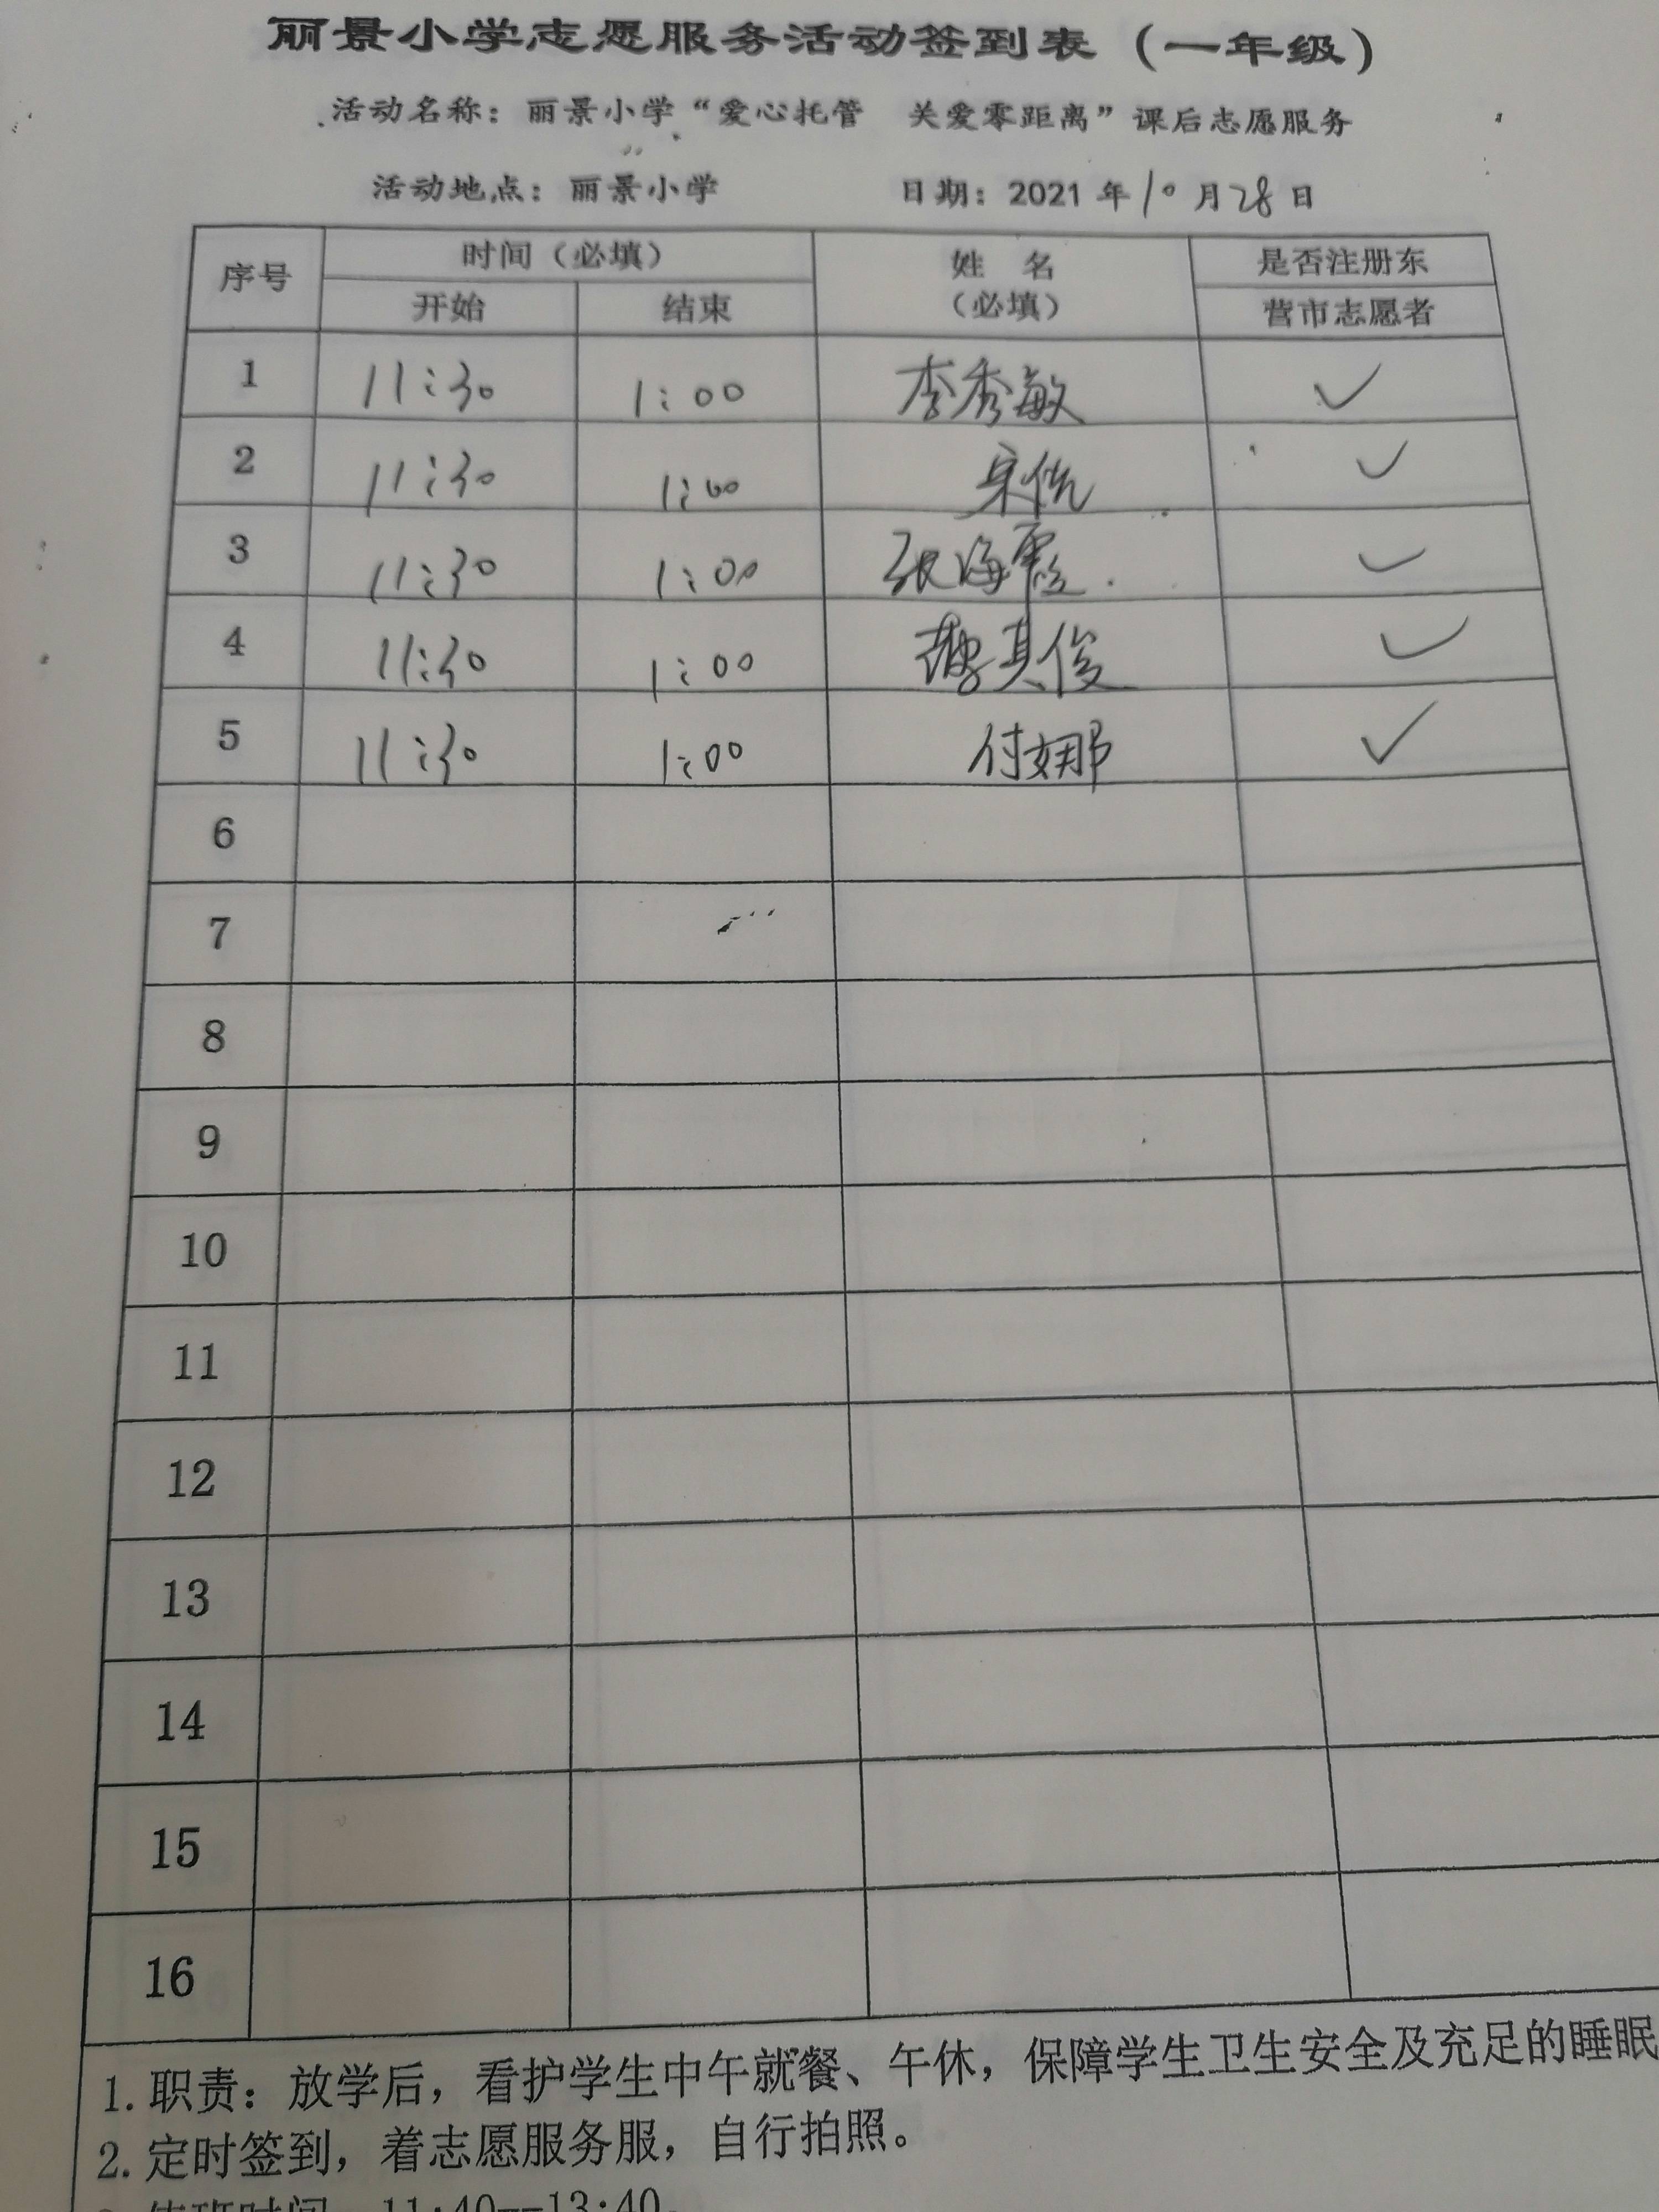 丽景小学志愿服务活动签到表（一年级）
活动名称：丽景小学“爱心托管 关爱零距离”课后志愿服务
活动地点：丽景小学 日期：2021年10月28日
序号 时间（必填） 姓 名 是否注册东
开始 结束 （必填） 营市志愿者
1 11:30 1:00 李秀敏 ✓
2 11:30 1:00 宋 ✓
3 11:30 1:00 张海霞 ✓
4 11:30 1:00 其俊 ✓
5 11:30 1:00 付娜 ✓
6
7
8
9
10
11
12
13
14
15
16
1.职责：放学后，看护学生中午就餐、午休，保障学生卫生安全及充足的睡眠
2.定时签到，着志愿服务服，自行拍照。
值班时间 11:40--13:40